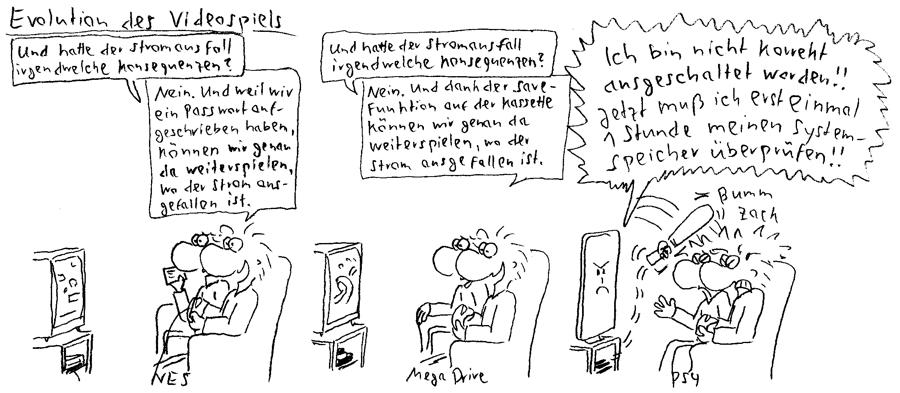 Evolution des Videospiels
Und hatte der Stromausfall
irgendwelche Konsequenzen?
Nein. Und weil wir
ein Passwort auf-
geschrieben haben,
können wir genau
da weiterspielen,
wo der Strom aus-
gefallen ist.
NES
Und hatte der Stromausfall
irgendwelche Konsequenzen?
Nein. Und dank der Save-
Funktion auf der Kassette
können wir genau da
weiterspielen, wo der
Strom ausgefallen ist.
Mega Drive
Ich bin nicht korrekt
ausgeschaltet worden!!
Jetzt muß ich erst einmal
1 Stunde meinen System-
speicher überprüfen!!
Bumm
Zack
PS4